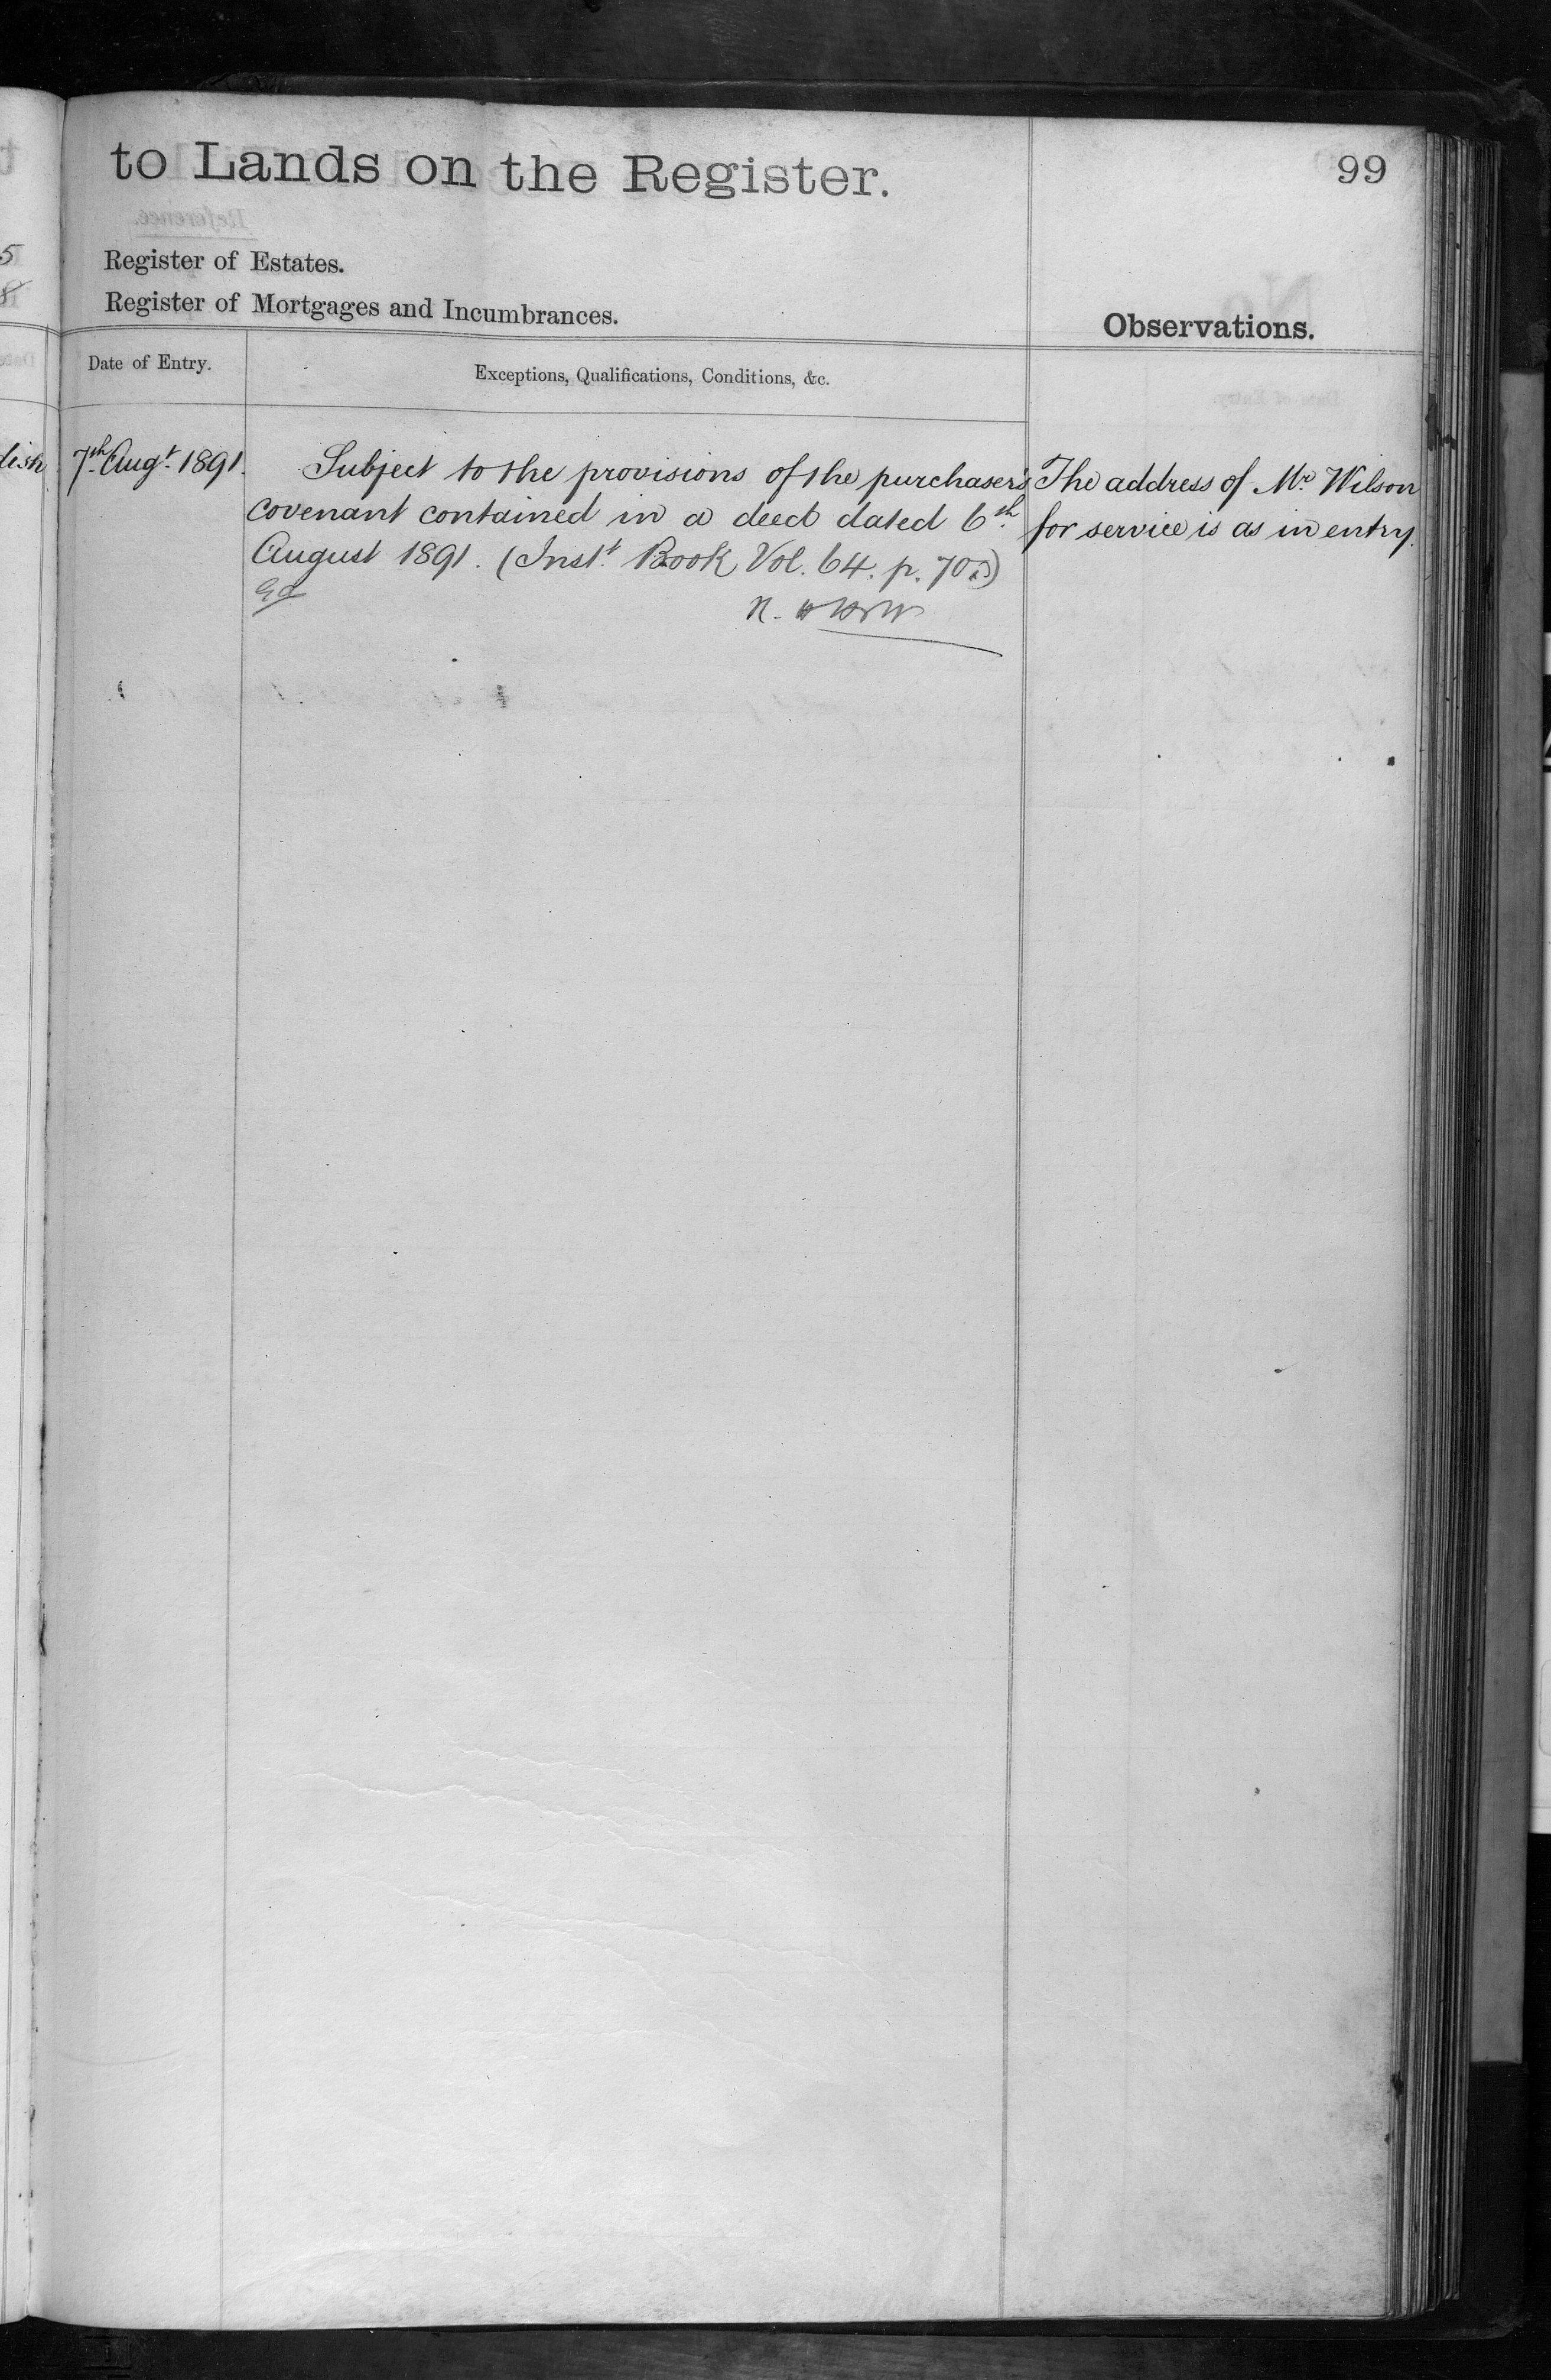 to Lands on the Register.
99
Register of Estates.
Register of Mortgages and Incumbrances.
Observations.
Date of Entry.
Exceptions, Qualifications, Conditions, &c.
7th Augt. 1891.
Subject to the provisions of the purchaser's
covenant contained in a deed dated 6th.
August 1891. (Inst.t Book Vol. 64. p. 70.)
The address of Mr Wilson
for service is as in entry.